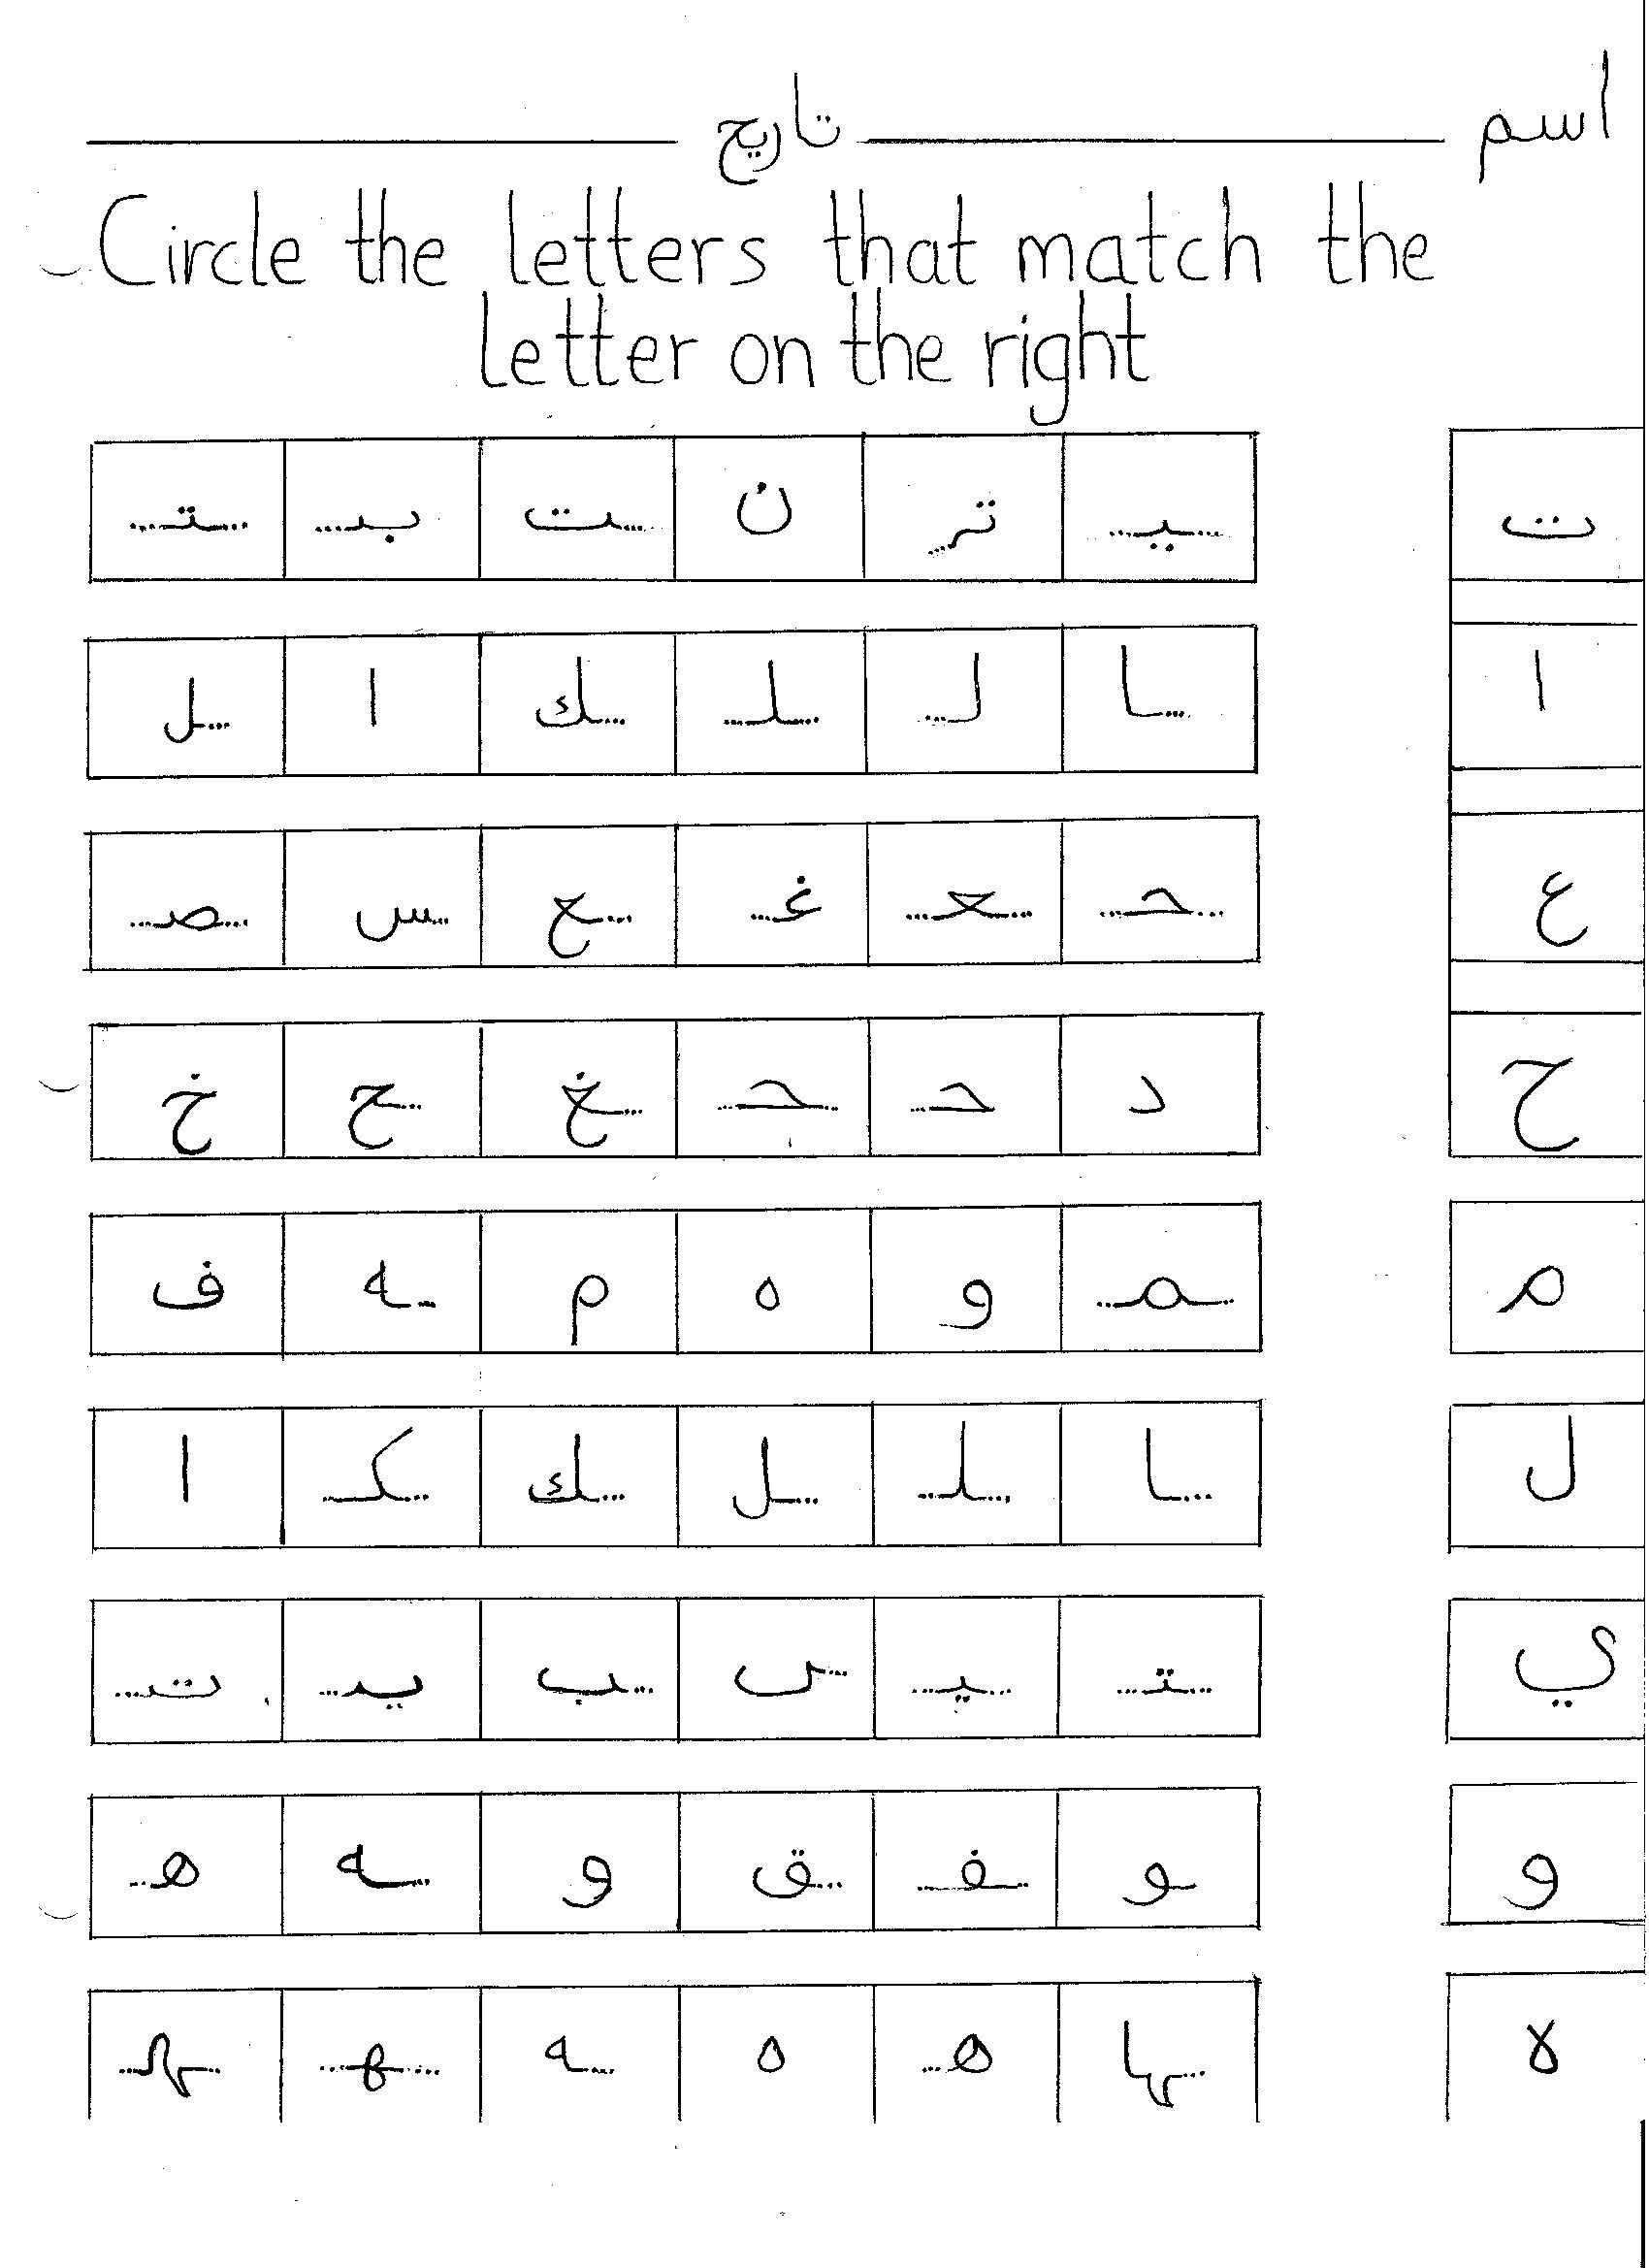 اسم ________ تاريح ________
Circle the letters that match the
letter on the right
ت يـ تر ن ـت بـ ـتـ
ا ـا لـ ـلـ ـك ا ـل
ع ـحـ ـعـ غـ ـع ـس ـصـ
ح د حـ ـحـ ـغ ـح خ
م ـمـ و ه م ـه ف
ل ـا ـلـ ـل ـك ـكـ ا
ي ـتـ ـيـ ـب يـ تـ
و ـو ـفـ ـق و ـه هـ
ـها هـ ه ـه ـهـ ـهـ